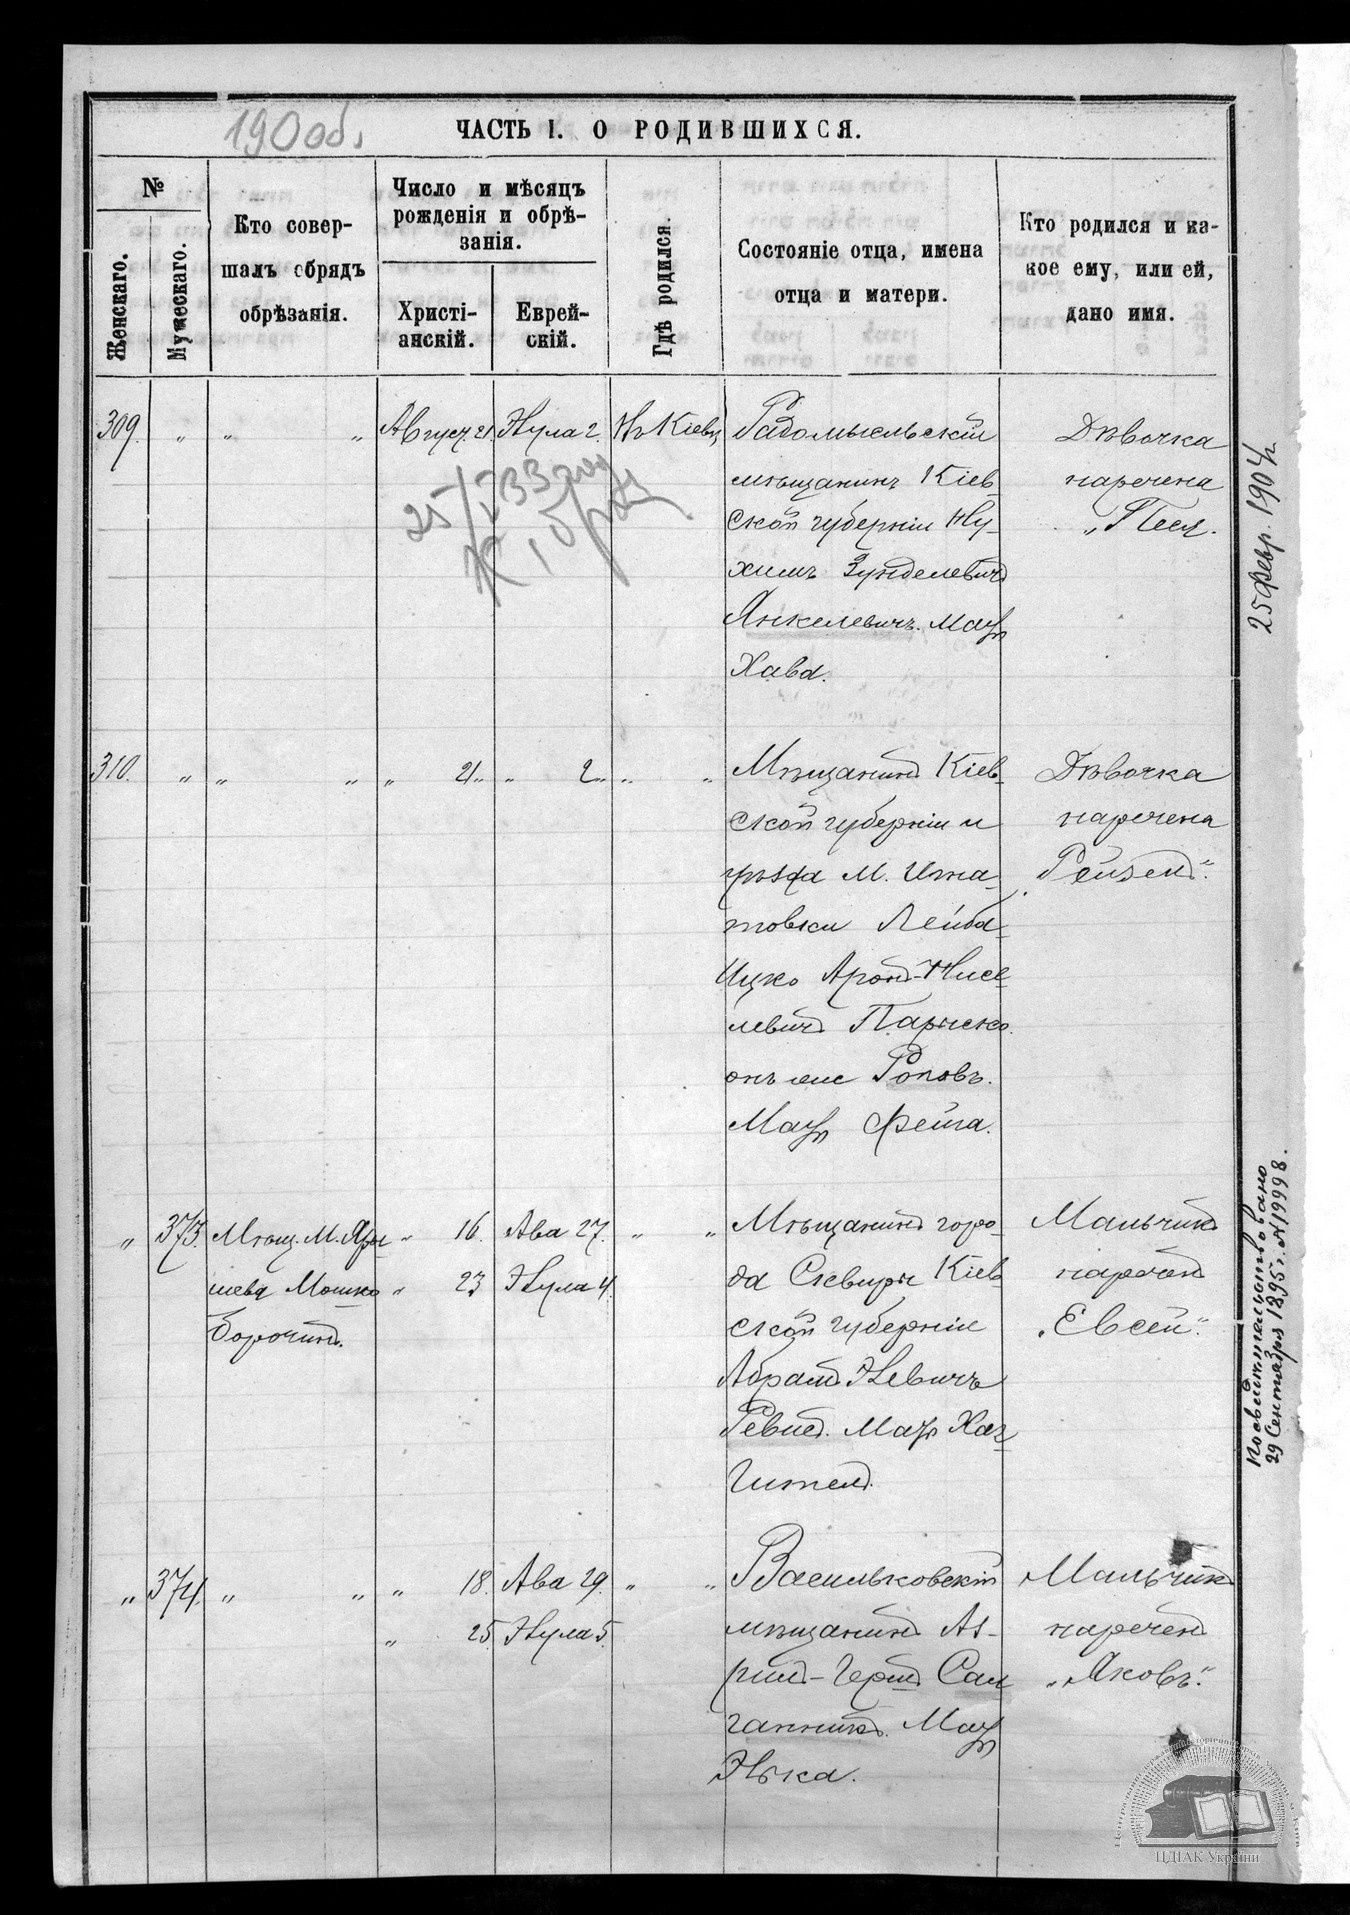 190 об.
ЧАСТЬ I. О РОДИВШИХСЯ.
№
Женскаго.
Мужескаго.
Кто совер-
шалъ обрядъ
обрѣзанія.
Число и мѣсяцъ
рожденія и обрѣ-
занія.
Христі-
анскій.
Еврей-
скій.
Гдѣ родился.
Состояніе отца, имена
отца и матери.
Кто родился и ка-
кое ему, или ей,
дано имя.
309. „ „ „ Август. 21 Элула 2. Въ Кіевѣ
Радомысльскій
мѣщанинъ Кіев-
ской губерніи Ну-
химъ Зунделевичъ
Янкелевичъ. Мать
Хава.
Дѣвочка
наречена
„Песя.
310. „ „ „ „ 21„ „ 2„ „ „
Мѣщанинъ Кіев-
ской губерніи и
уѣзда М. Игна-
товки Лейба-
Ицко Аронъ-Нисе-
левичъ
онъ же Поповъ.
Мать Фейга.
Дѣвочка
наречена
„Рейзель“.
„ 373. Мѣщ. М. Яры
шева Мошко
Борочинъ.
„ 16. Ава 27. „ „
„ 23 Элула 4.
Мѣщанинъ горо-
да Сквиры Кіев
ской губерніи
Абрамъ
Ревис. Мать Хая-
Гитель.
Мальчикъ
нареченъ
„Евсей“.
„ 374. „ „ „ 18. Ава 29. „ „
„ 25. Элула 5.
Васильковскій
мѣщанинъ Аз-
риль-Герш Сал
ганникъ. Мать
Элька.
Мальчикъ
нареченъ
„Яковъ“.
25 февр. 1904 г.
Посвидѣтельствовано
29 Сентября 1895 г. № 19998.
ЦДІАК України